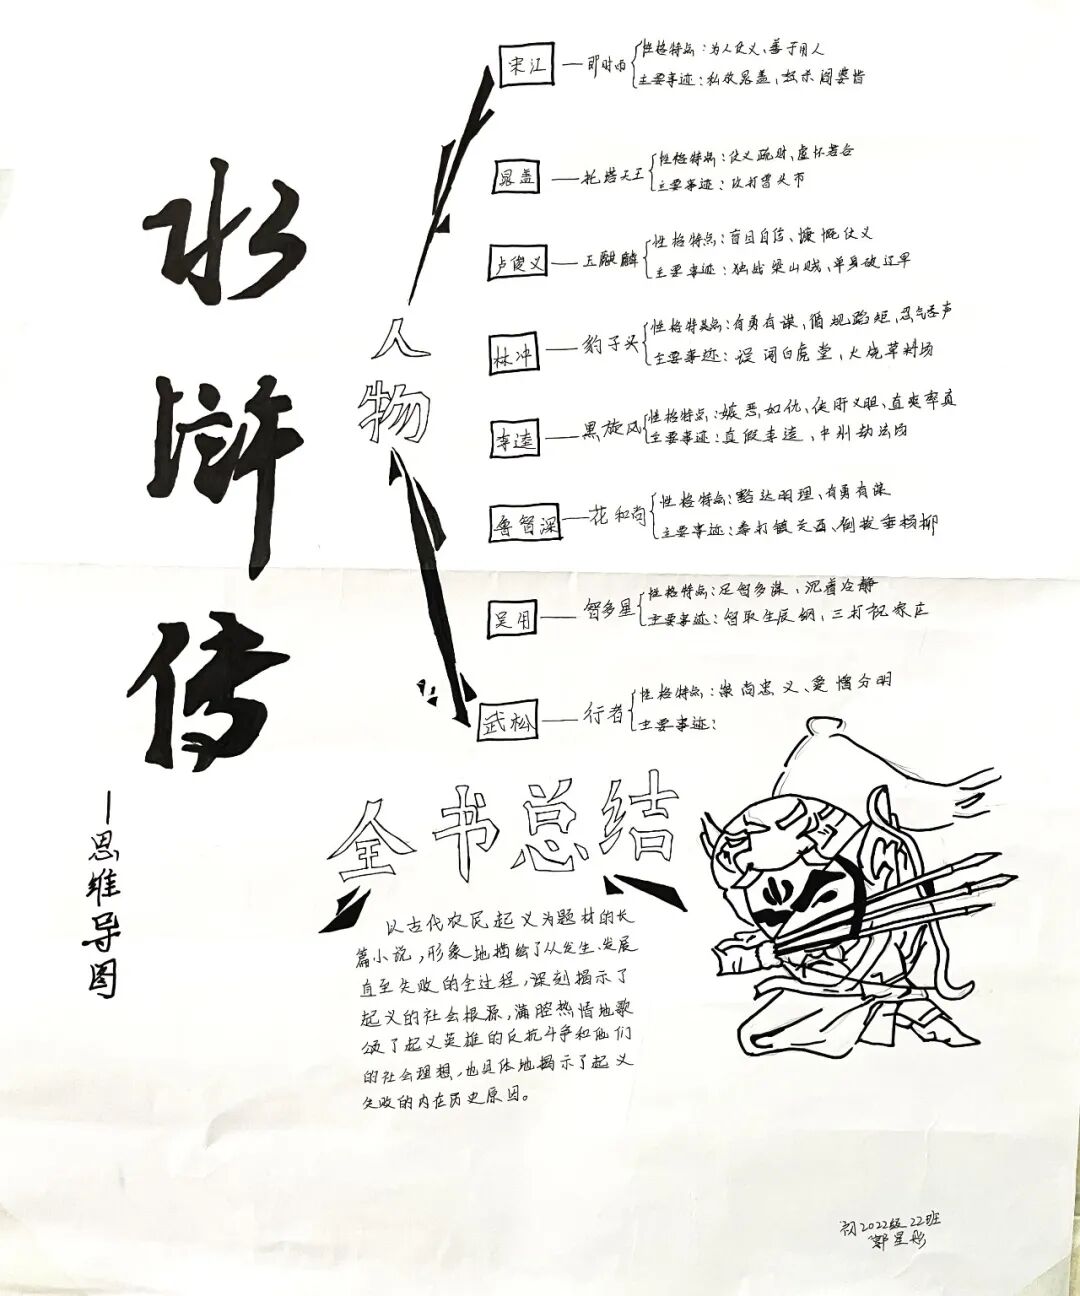 水浒传
—思维导图
人物
宋江—即时雨
性格特点：为人仗义、善于用人
主要事迹：私放晁盖、怒杀阎婆惜
晁盖—托塔天王
性格特点：仗义疏财、虚怀若谷
主要事迹：攻打曾头市
卢俊义—玉麒麟
性格特点：盲目自信、慷慨仗义
主要事迹：独战梁山贼、单身破辽军
林冲—豹子头
性格特点：有勇有谋、循规蹈矩、忍气吞声
主要事迹：误闯白虎堂、火烧草料场
李逵—黑旋风
性格特点：嫉恶如仇、侠肝义胆、直爽率真
主要事迹：真假李逵、中州劫法场
鲁智深—花和尚
性格特点：豁达明理、有勇有谋
主要事迹：拳打镇关西、倒拔垂杨柳
吴用—智多星
性格特点：足智多谋、沉着冷静
主要事迹：智取生辰纲、三打祝家庄
武松—行者
性格特点：崇尚忠义、爱憎分明
主要事迹：
全书总结
以古代农民起义为题材的长
篇小说，形象地描绘了从发生、发展
直至失败的全过程，深刻揭示了
起义的社会根源，满腔热情地歌
颂了起义英雄的反抗斗争和他们
的社会理想，也具体地揭示了起义
失败的内在历史原因。
初2022级22班
郭星彤